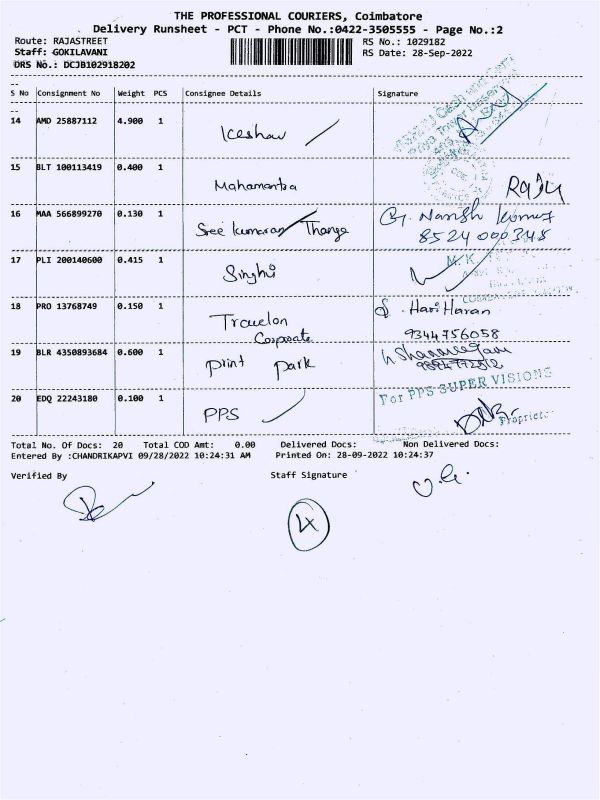 THE PROFESSIONAL COURIERS, Coimbatore
Delivery Runsheet - PCT - Phone No.:0422-3505555 - Page No.:2
Route: RAJASTREET RS No.: 1029182
Staff: GOKILAVANI RS Date: 28-Sep-2022
DRS No.: DCJB102918202
S No Consignment No Weight PCS Consignee Details Signature
14 AMD 25887112 4.900 1 Keshav
15 BLT 100113419 0.400 1 Mahamantra Raju
16 MAA 566899270 0.130 1 Sree kumaran Thanga G. Narish kumar
8524000348
17 PLI 200140600 0.415 1 Singhi M.K
18 PRO 13768749 0.150 1 Travelon S. Hari Haran
Corporate 9344756058
19 BLR 4350893684 0.600 1 print park
20 EDQ 22243180 0.100 1 PPS For PPS SUPER VISIONS
Proprietor
Total No. Of Docs: 20 Total COD Amt: 0.00 Delivered Docs: Non Delivered Docs:
Entered By :CHANDRIKAPVI 09/28/2022 10:24:31 AM Printed On: 28-09-2022 10:24:37
Verified By Staff Signature
4